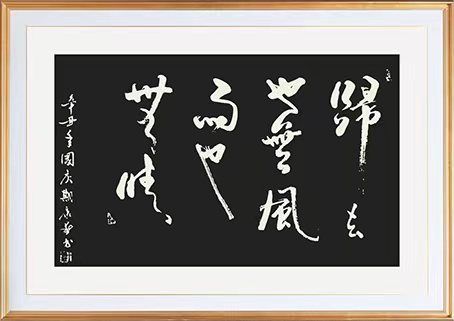 歸去
也無風
雨也
無晴
辛丑年國慶